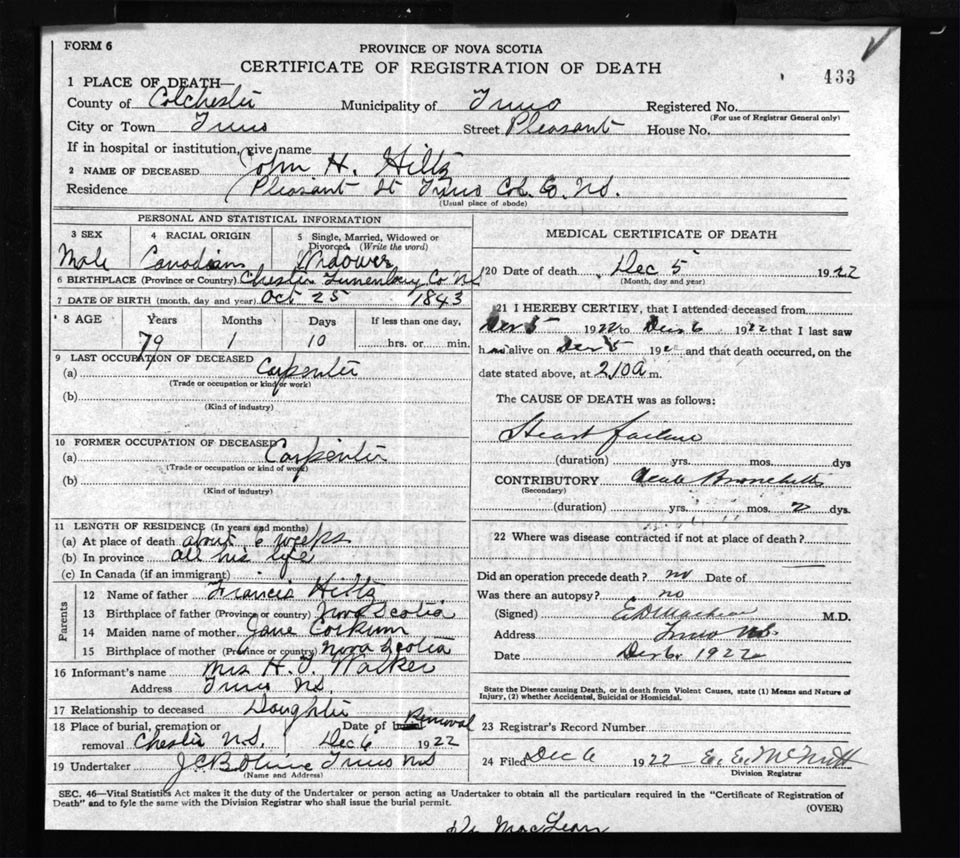 FORM 6
PROVINCE OF NOVA SCOTIA
CERTIFICATE OF REGISTRATION OF DEATH
433
1 PLACE OF DEATH—
County of Colchester Municipality of Truro Registered No.
(For use of Registrar General only)
City or Town Truro Street Pleasant House No.
If in hospital or institution, give name
2 NAME OF DECEASED John H. Hiltz
Residence Pleasant St Truro Col. Co. N.S.
(Usual place of abode)
PERSONAL AND STATISTICAL INFORMATION
3 SEX 4 RACIAL ORIGIN 5 Single, Married, Widowed or Divorced. (Write the word)
Male Canadian Widower
6 BIRTHPLACE (Province or Country) Chester Lunenburg Co NS
7 DATE OF BIRTH (month, day and year) Oct 25 1843
8 AGE Years Months Days If less than one day,
79 1 10 hrs. or min.
9 LAST OCCUPATION OF DECEASED
(a) Carpenter
(Trade or occupation or kind or work)
(b)
(Kind of industry)
10 FORMER OCCUPATION OF DECEASED
(a) Carpenter
(Trade or occupation or kind of work)
(b)
(Kind of industry)
11 LENGTH OF RESIDENCE (In years and months)
(a) At place of death about 6 weeks
(b) In province all his life
(c) In Canada (if an immigrant)
Parents
12 Name of father Francis Hiltz
13 Birthplace of father (Province or country) Nova Scotia
14 Maiden name of mother Jane Corkum
15 Birthplace of mother (Province or country) Nova Scotia
16 Informant's name Mrs H. J. Walker
Address Truro N.S.
17 Relationship to deceased Daughter
18 Place of burial, cremation or Date of Removal
removal Chester N.S. Dec 6 1922
19 Undertaker Truro NS
(Name and Address)
MEDICAL CERTIFICATE OF DEATH
20 Date of death Dec 5 1922
(Month, day and year)
21 I HEREBY CERTIFY, that I attended deceased from
Dec 5 1922 to Dec 6 1922 that I last saw
h alive on Dec 5 192 and that death occurred, on the
date stated above, at 2.10 a m.
The CAUSE OF DEATH was as follows:
Heart failure
(duration) yrs. mos. dys
CONTRIBUTORY Acute Bronchitis
(Secondary)
(duration) yrs. mos. 2 dys.
22 Where was disease contracted if not at place of death?
Did an operation precede death? no Date of
Was there an autopsy? no
(Signed) M.D.
Address Truro N.S.
Date Dec 6. 1922
State the Disease causing Death, or in death from Violent Causes, state (1) Means and Nature of
Injury, (2) whether Accidental, Suicidal or Homicidal.
23 Registrar's Record Number
24 Filed Dec 6 1922 E. E. McNutt
Division Registrar
SEC. 46—Vital Statistics Act makes it the duty of the Undertaker or person acting as Undertaker to obtain all the particulars required in the "Certificate of Registration of
Death" and to fyle the same with the Division Registrar who shall issue the burial permit.
(OVER)
Dr MacLean